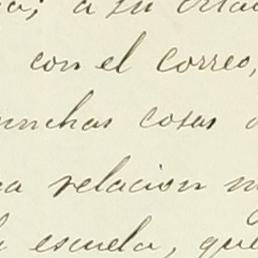 a su
con el correo,
muchas cosas
relacion
escuela, que